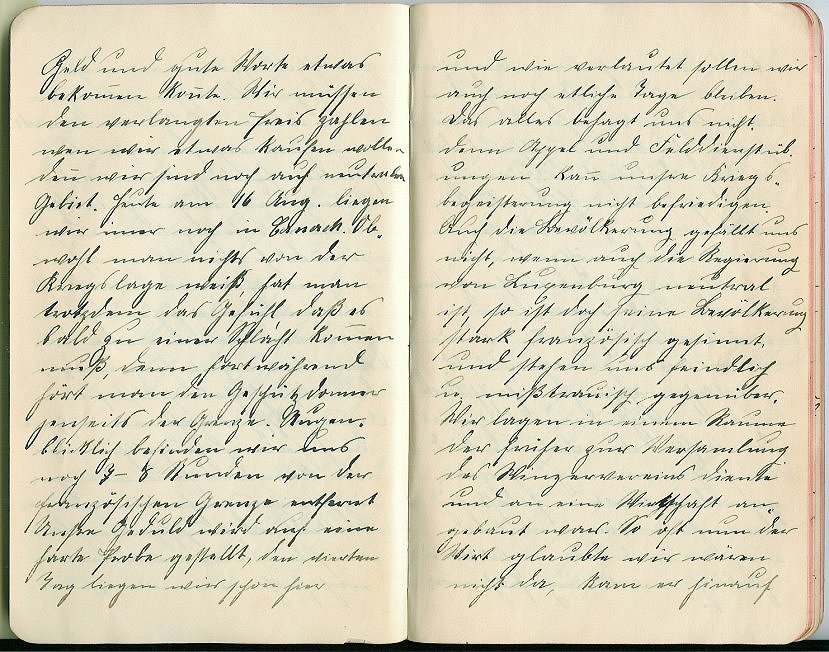 Geld und gute Worte etwas
bekom̅en kon̅te. Wir müssen
den verlangten Preis zahlen
wen wir etwas kaufen wollen
den̅ wir sind noch auf neutralem
Gebiet. Heute am 16 Aug. liegen
wir imer noch in Canach. Ob-
wohl man nichts von der
Kriegslage weiß, hat man
trotzdem das Gefühl daß es
bald zu einer Schlacht kom̅en
muß, denn fortwährend
hört man den Geschützdonner
jenseits der Grenze. Augen-
blicklich befinden wir uns
noch 7-8 Stunden von der
französischen Grenze entfernt
Unsre Geduld wird auf eine
harte Probe gestellt, den vierten
Tag liegen wir schon hier
und wie verlautet sollen wir
auch noch etliche Tage bleiben.
Das alles behagt uns nicht.
denn Appel und Felddienstüb
ungen kan̅ unsre Kriegs-
begeisterung nicht befriedigen
Auch die Bevölkerung gefällt uns
nicht, wenn auch die Regierung
von Luxenburg neutral
ist so ist doch seine Bevölkerung
stark französisch gesinnt
und stehen uns feindlich
u. mißtrauisch gegenüber.
Wir lagen in einem Raume
der früher zur Versamlung
des Winzervereins diente
und an eine Wirtschaft an-
gebaut war. So oft nun der
Wirt glaubte wir wären
nicht da, kam er hinauf